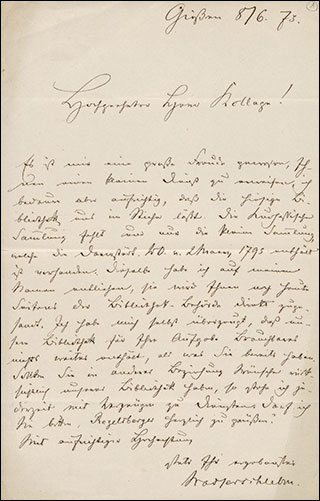 Gießen 8/6. 73.
Hochgeehrter Herr Kollege!
Es ist mir eine große Freude gewesen, Ih-
nen einen kleinen Dienst zu erweisen, ich
bedaure aber aufrichtig, daß die hiesige Bi-
bliothek uns im Stiche läßt. Die Kurhessische
Samlung fehlt und nur die kleine Samlung,
welche die Darmst. V.O. v. 2 März 1795 enthält
ist vorhanden. Dieselbe habe ich auf meinen
Namen entliehen, sie wird Ihnen noch heute
Seitens der Bibliothek-Behörde direkt zuge-
sandt. Ich habe mich selbst überzeugt, daß un-
sere Bibliothek für Ihre Aufgabe Brauchbares
nichts weiter enthält, als was Sie bereits haben.
Sollten Sie in anderer Beziehung Wünsche rück-
sichtlich unserer Bibliothek haben, so stehe ich je-
derzeit mit Vergnügen zu Diensten. Darf ich
Sie bitten, Regelsberger herzlich zu grüßen?
Mit aufrichtiger Hochachtung
stets Ihr ergebenster
Wasserschleben.